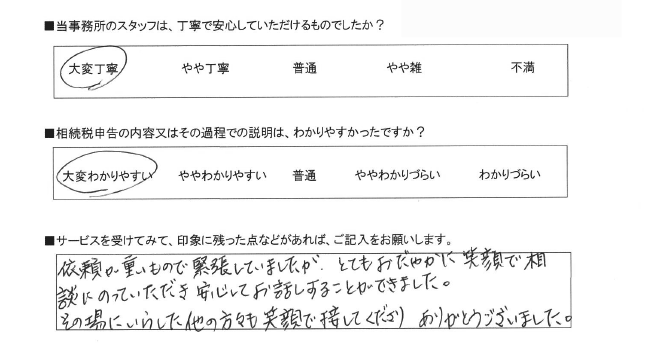 ■当事務所のスタッフは、丁寧で安心していただけるものでしたか？
大変丁寧 やや丁寧 普通 やや雑 不満
■相続税申告の内容又はその過程での説明は、わかりやすかったですか？
大変わかりやすい ややわかりやすい 普通 ややわかりづらい わかりづらい
■サービスを受けてみて、印象に残った点などがあれば、ご記入をお願いします。
依頼が重いもので緊張していましたが、とてもおだやかに笑顔で相
談にのっていただき安心してお話しすることができました。
その場にいらした他の方々も笑顔で接してくださりありがとうございました。